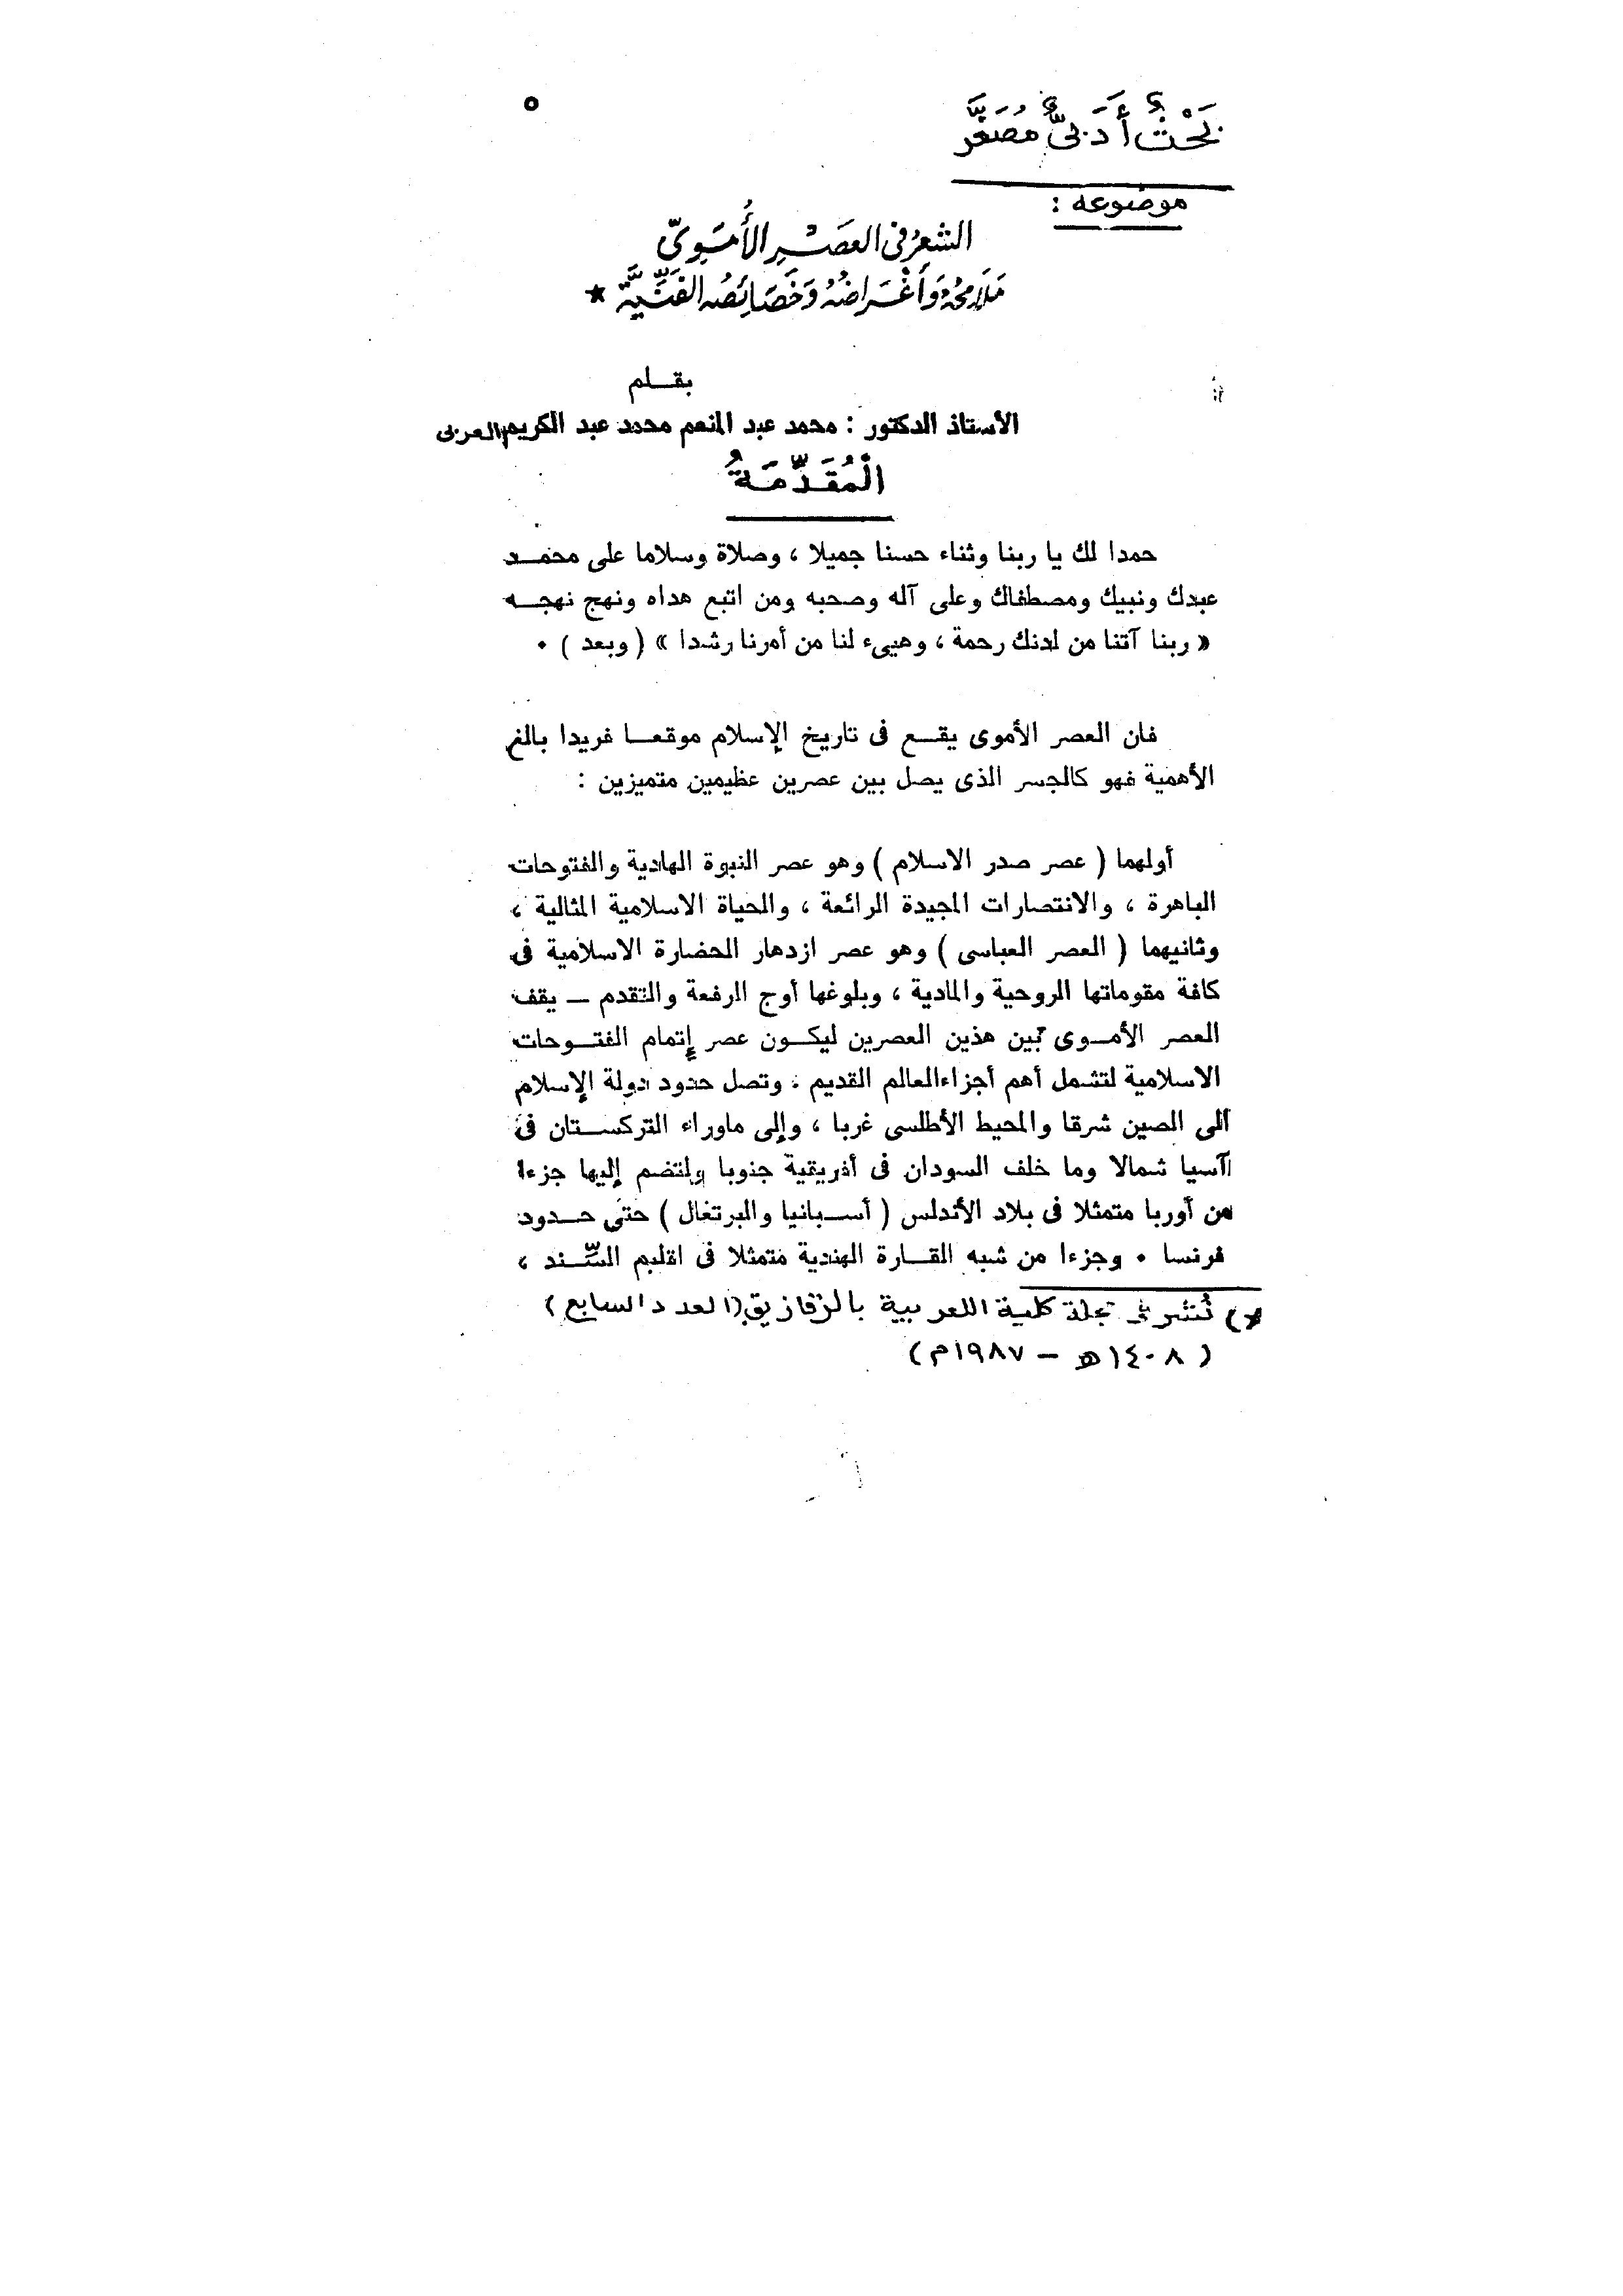 ٥
بَحْثٌ أَدَبِيٌّ مُصَغَّر
موضوعه :
الشعرُ فى العصْرِ الأُمَوِىّ
مَلَامِحُهُ وَأَغْرَاضُهُ وَخَصَائِصُه الفَنِّيَّة ★
بقـــلم
الأستاذ الدكتور : محمد عبد المنعم محمد عبد الكريم العربى
الْمُقَدِّمَةُ
حمدا لك يا ربنا وثناء حسنا جميلا ، وصلاة وسلاما على محمــد
عبدك ونبيك ومصطفاك وعلى آله وصحبه ومن اتبع هداه ونهج نهجــه
« ربنا آتنا من لدنك رحمة ، وهيىء لنا من أمرنا رشدا » ( وبعد ) ٠
فان العصر الأموى يقـــع فى تاريخ الإسلام موقعــا فريدا بالغ
الأهمية فهو كالجسر الذى يصل بين عصرين عظيمين متميزين :
أولهما ( عصر صدر الاسلام ) وهو عصر النبوة الهادية والفتوحات
الباهرة ، والانتصارات المجيدة الرائعة ، والحياة الاسلامية المثالية ،
وثانيهما ( العصر العباسى ) وهو عصر ازدهار الحضارة الاسلامية فى
كافة مقوماتها الروحية والمادية ، وبلوغها أوج الرفعة والتقدم — يقف
العصر الأمــوى بين هذين العصرين ليكــون عصر إتمام الفتــوحات
الاسلامية لتشمل أهم أجزاء العالم القديم ، وتصل حدود دولة الإسلام
الى الصين شرقا والمحيط الأطلسى غربا ، وإلى ماوراء التركســتان فى
آسيا شمالا وما خلف السودان فى أفريقية جنوبا ولتضم إليها جزءا
من أوربا متمثلا فى بلاد الأندلس ( أســبانيا والبرتغال ) حتى حــدود
فرنسا ٠ وجزءا من شبه القــارة الهندية متمثلا فى اقليم السِّــند ،
*) نُشر فى مجلة كلية اللغة العربية بالزقازيق (العدد السابع)
( ١٤٠٨هـ – ١٩٨٧م)